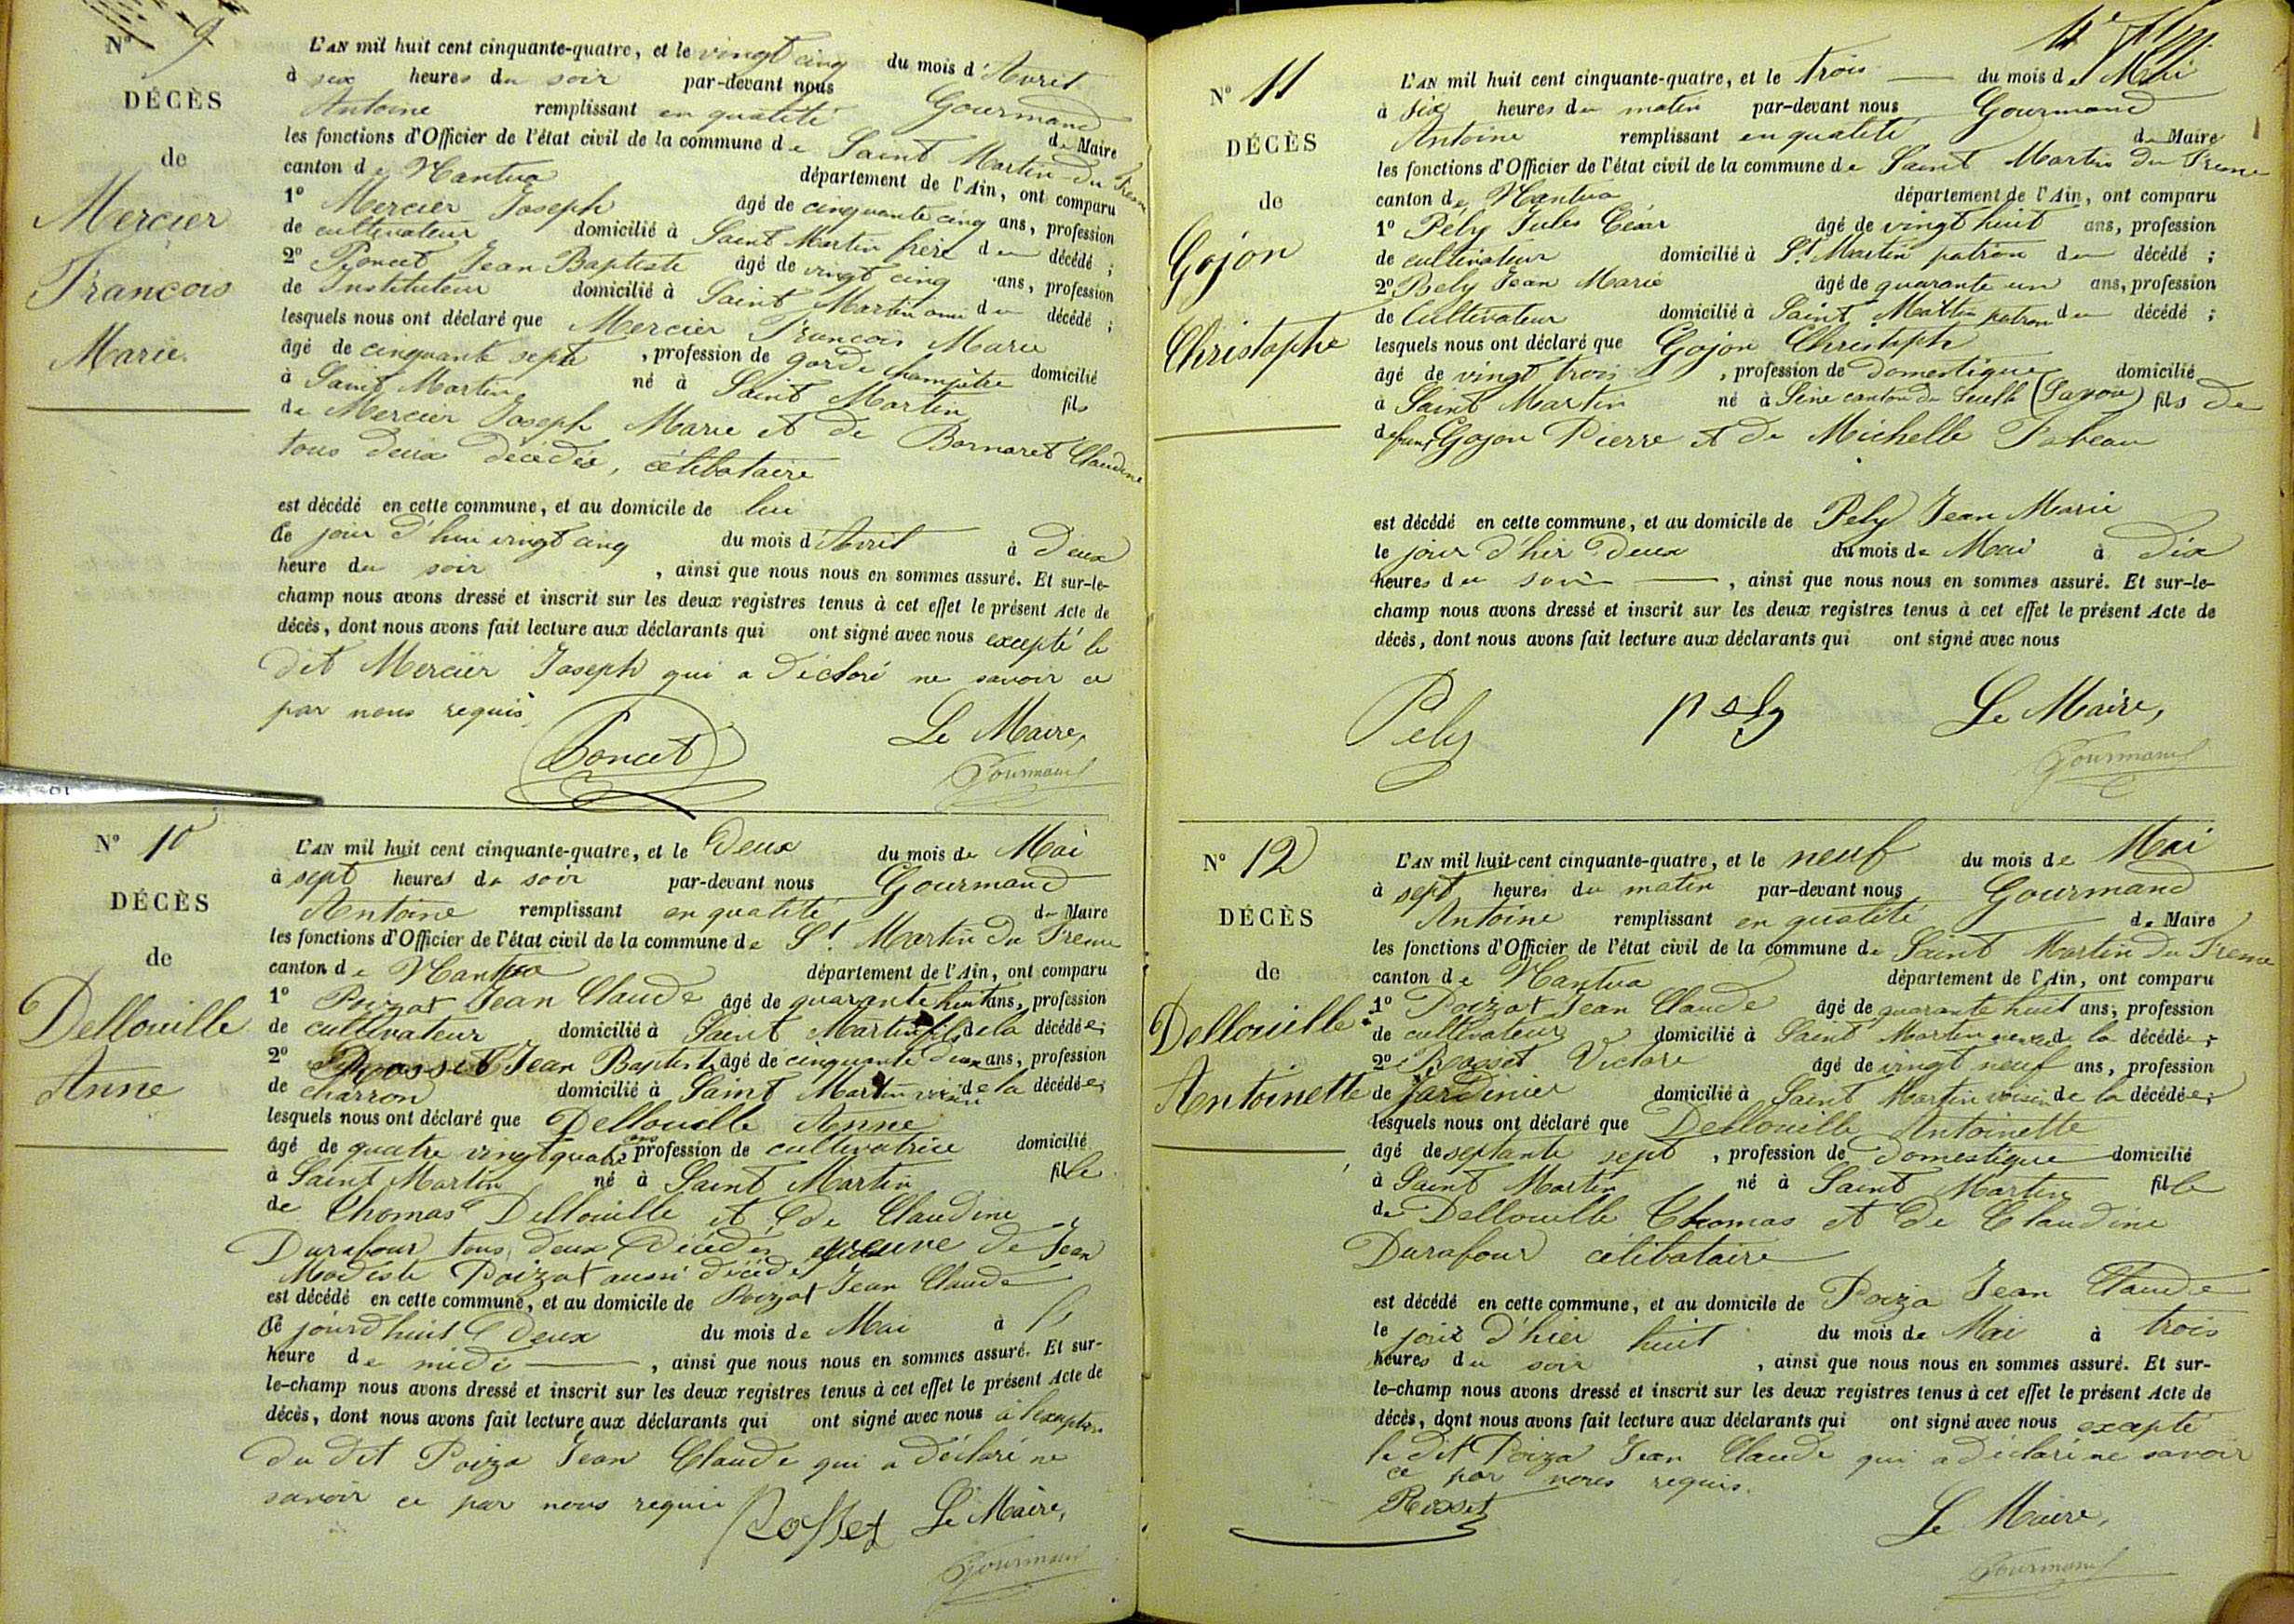 N° 9
DÉCÈS
de
Mercier
François
Marie
L'AN mil huit cent cinquante-quatre, et le vingt cinq du mois d'Avril
à six heures du soir par-devant nous Gourmand
Antoine remplissant en qualité de Maire
les fonctions d'Officier de l'état civil de la commune de Saint Martin du Fresne
canton de Nantua département de l'Ain, ont comparu
1° Mercier Joseph âgé de cinquante cinq ans, profession
de cultivateur domicilié à Saint Martin frère du décédé ;
2° Poncet Jean Baptiste âgé de vingt cinq ans, profession
de Instituteur domicilié à Saint Martin ami du décédé ;
lesquels nous ont déclaré que Mercier François Marie
âgé de cinquante sept , profession de garde champêtre domicilié
à Saint Martin né à Saint Martin fils
de Mercier Joseph Marie et de Bornaret Claudine
tous deux décédés, célibataire
est décédé en cette commune, et au domicile de lui
Ce jour d'hui vingt cinq du mois d'Avril à deux
heure du soir , ainsi que nous nous en sommes assuré. Et sur-le-
champ nous avons dressé et inscrit sur les deux registres tenus à cet effet le présent Acte de
décès, dont nous avons fait lecture aux déclarants qui ont signé avec nous excepté le
dit Mercier Joseph qui a déclaré ne savoir ce
par nous requis
Poncet Le Maire,
Gourmand
N° 10
DÉCÈS
de
Dellouille
Anne
L'AN mil huit cent cinquante-quatre, et le Deux du mois de Mai
à sept heures du soir par-devant nous Gourmand
Antoine remplissant en qualité de Maire
les fonctions d'Officier de l'état civil de la commune de St. Martin du Fresne
canton de Nantua département de l'Ain, ont comparu
1° Poizat Jean Claude âgé de quarante huit ans, profession
de cultivateur domicilié à Saint Martin fils de la décédée ;
2° Rosset Jean Baptiste âgé de cinquante deux ans, profession
de charron domicilié à Saint Martin voisin de la décédée ;
lesquels nous ont déclaré que Dellouille Anne
âgé de quatre vingt quatre ans, profession de cultivatrice domicilié
à Saint Martin né à Saint Martin fille
de Thomas Dellouille et de Claudine
Durafour tous deux décédés veuve de Jean
Modeste Poizat aussi décédé
est décédé en cette commune, et au domicile de Poizat Jean Claude
Ce jourd'huit Deux du mois de Mai à
heure de midi , ainsi que nous nous en sommes assuré. Et sur-
le-champ nous avons dressé et inscrit sur les deux registres tenus à cet effet le présent Acte de
décès, dont nous avons fait lecture aux déclarants qui ont signé avec nous à l'exception
du dit Poiza Jean Claude qui a déclaré ne
savoir ce par nous requis
Rosset Le Maire,
Gourmand
N° 11
DÉCÈS
de
Gojon
Christophe
L'AN mil huit cent cinquante-quatre, et le trois du mois de Mai
à six heures du matin par-devant nous Gourmand
Antoine remplissant en qualité de Maire
les fonctions d'Officier de l'état civil de la commune de Saint Martin du Fresne
canton de Nantua département de l'Ain, ont comparu
1° Pély Jules César âgé de vingt huit ans, profession
de cultivateur domicilié à St. Martin patron du décédé ;
2° Pely Jean Marie âgé de quarante un ans, profession
de Cultivateur domicilié à Saint Martin patron du décédé ;
lesquels nous ont déclaré que Gojon Christoph
âgé de vingt trois , profession de domestique domicilié
à Saint Martin né à canton de (Savoie) fils de
defunt Gojon Pierre et de Michelle
est décédé en cette commune, et au domicile de Pely Jean Marie
le jour d'hier Deux du mois de Mai à dix
heures du soir , ainsi que nous nous en sommes assuré. Et sur-le-
champ nous avons dressé et inscrit sur les deux registres tenus à cet effet le présent Acte de
décès, dont nous avons fait lecture aux déclarants qui ont signé avec nous
Pely pely Le Maire,
Gourmand
N° 12
DÉCÈS
de
Dellouille
Antoinette
L'AN mil huit cent cinquante-quatre, et le neuf du mois de Mai
à sept heures du matin par-devant nous Gourmand
Antoine remplissant en qualité de Maire
les fonctions d'Officier de l'état civil de la commune de Saint Martin du Fresne
canton de Nantua département de l'Ain, ont comparu
1° Poizat Jean Claude âgé de quarante huit ans, profession
de cultivateur domicilié à Saint Martin neveu de la décédée ;
2° Rosset Victore âgé de vingt neuf ans, profession
de Jardinier domicilié à Saint Martin voisin de la décédée ;
lesquels nous ont déclaré que Dellouille Antoinette
âgé de septante sept , profession de Domestique domicilié
à Saint Martin né à Saint Martin fille
de Dellouille Thomas et de Claudine
Durafour célibataire
est décédé en cette commune, et au domicile de Poiza Jean Claude
le jour d'hier huit du mois de Mai à trois
heures du soir , ainsi que nous nous en sommes assuré. Et sur-
le-champ nous avons dressé et inscrit sur les deux registres tenus à cet effet le présent Acte de
décès, dont nous avons fait lecture aux déclarants qui ont signé avec nous excepté
le dit Poiza Jean Claude qui a déclaré ne savoir
ce par nous requis.
Rosset Le Maire,
Gourmand